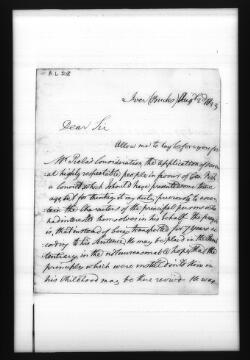 Iver (Bucks) Aug 2d 1843
Dear Sir
Allow me to lay before you for
Mr Peel's consideration, the application of several
highly respectable people in favour of
a convict which I should have presented some time
ago but for thinking it my duty previously to
the character of the principal persons who
had interested themselves in his behalf. The prayer
is, that instead of being transported for 7 years ac
cording to his sentence, He may be placed in the Peni
tentiary, in the not unreasonable hope that the
principles which were instilled into them in
his Childhood may be there revived. He was